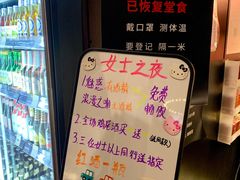 已恢复堂食
戴口罩 测体温
要登记 隔一米
女士之夜
1. 魅惑 免费
浪漫之 畅饮
2. 全场鸡尾酒买 送
3. 三位女士以上同行送指定
红酒一瓶